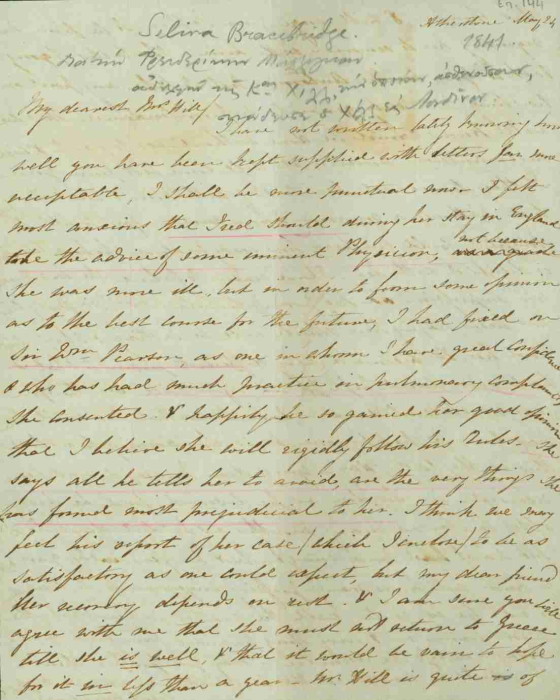 Επ. 144
Atherstone May 24
1841.
Selina Bracebridge.
My dearest Mrs Hill/
I have not written lately knowing how
well you have been kept supplied with letters far more
acceptable, I shall be more punctual now I felt
most anxious that Fred should during her stay in England
take the advice of some eminent Physician, not because
she was more ill, but in order to form some opinion
as to the best course for the future, I had fixed on
Sir Wm Pearson, as one in whom I have great confidence
& who has had much practice in pulmonary complaints
she consented & happily he so gained her good opinion
that I believe she will rigidly follow his rules. She
says all he tells her to avoid, are the very things she
has found most prejudicial to her. I think we may
feel his report of her case (which I enclose) to be as
satisfactory as one could expect, but my dear friend
Her recovery depends on rest. & I am sure you will
agree with me that she must not return to Greece
till she is well, & that it would be vain to hope
for it in less than a year Mr Hill is quite of